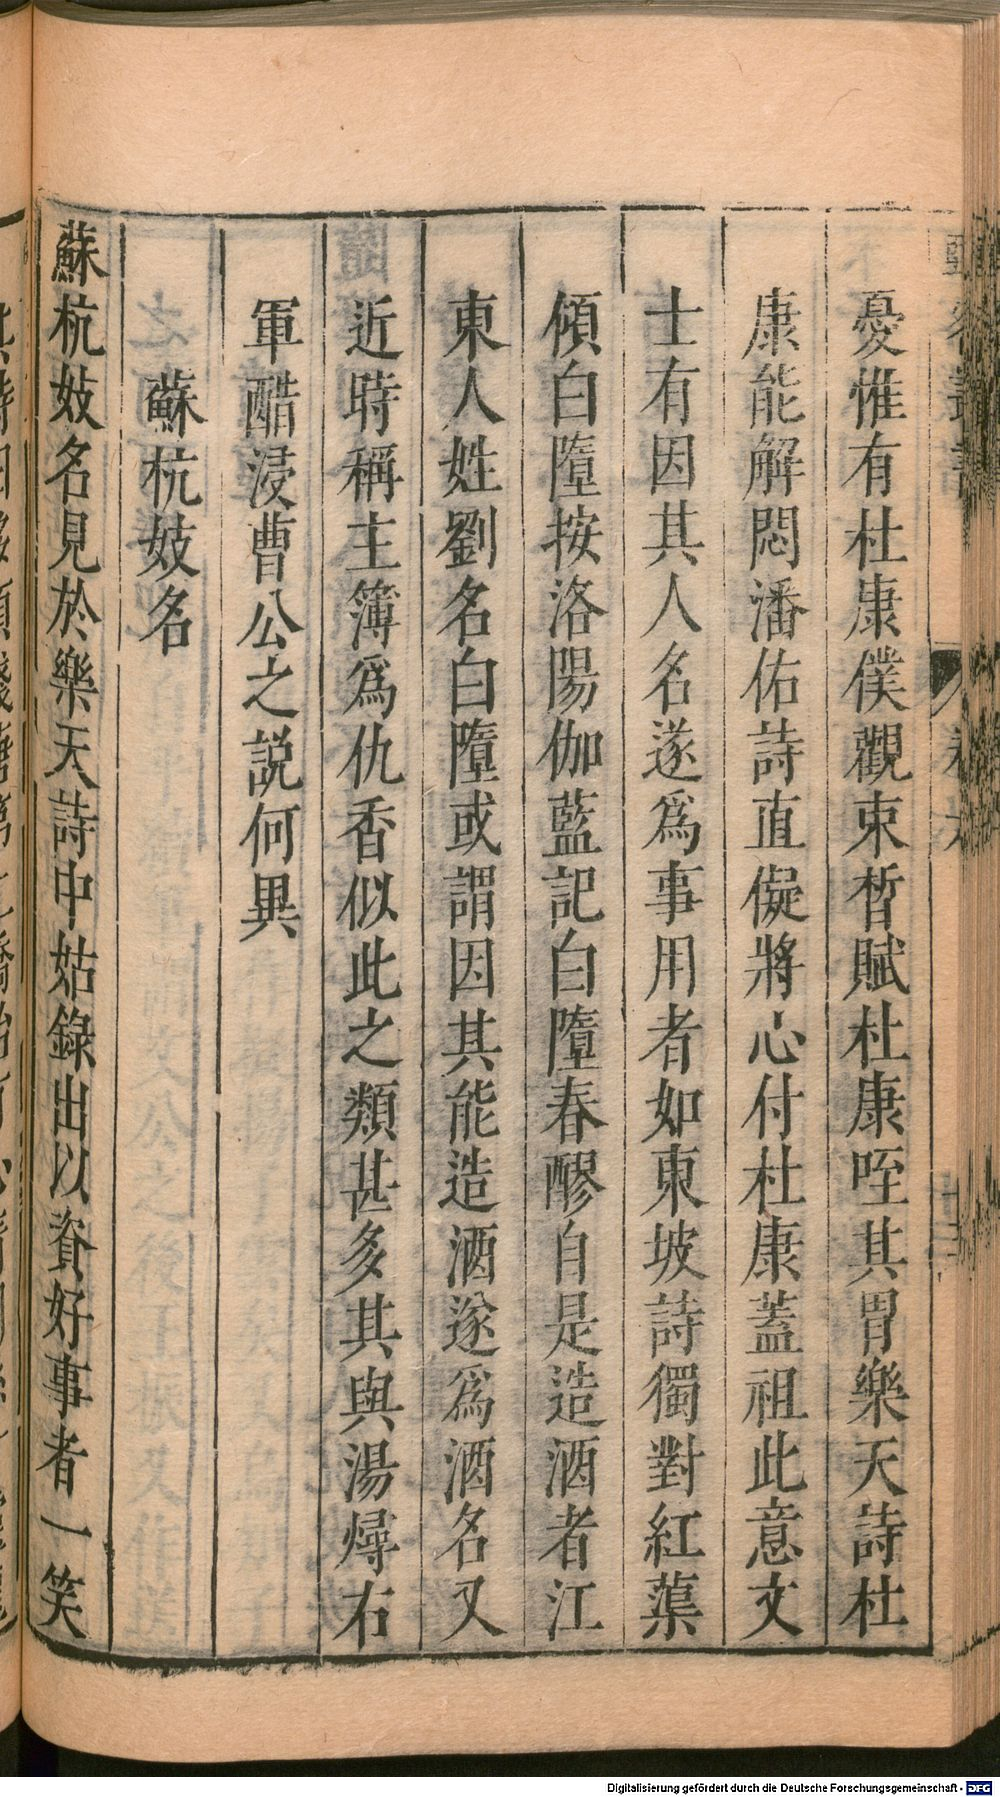 憂惟有杜康僕觀束皙賦杜康咥其胃樂天詩杜
康能解悶潘佑詩直儗將心付杜康蓋祖此意文
士有因其人名遂爲事用者如東坡詩獨對紅蕖
傾白墮按洛陽伽藍記白墮春醪自是造酒者江
東人姓劉名白墮或謂因其能造酒遂爲酒名又
近時稱主簿爲仇香似此之類甚多其與湯燖右
軍醋浸曹公之説何異
蘇杭妓名
蘇杭妓名見於樂天詩中姑錄出以資好事者一笑
Digitalisierung gefördert durch die Deutsche Forschungsgemeinschaft - DFG